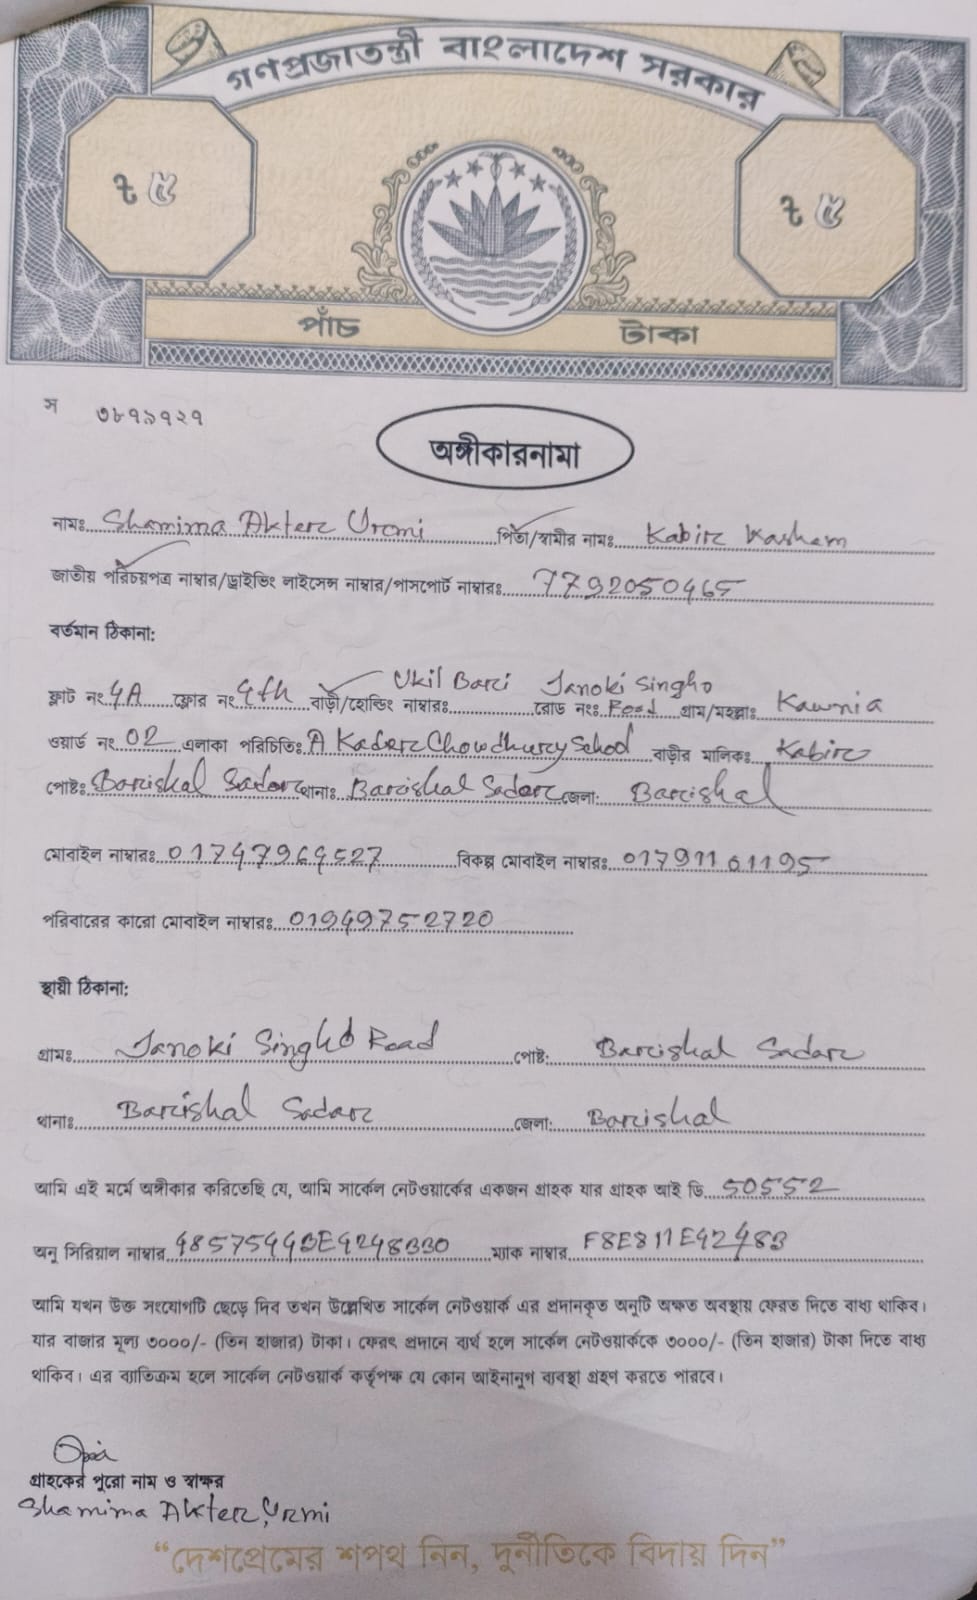 গণপ্রজাতন্ত্রী বাংলাদেশ সরকার
৳ ৫ ৳ ৫
পাঁচ টাকা
স ৩৮৭৯৭২৭
অঙ্গীকারনামা
নামঃ Shamima Akter Uromi পিতা/স্বামীর নামঃ Kabir Kashem
জাতীয় পরিচয়পত্র নাম্বার/ড্রাইভিং লাইসেন্স নাম্বার/পাসপোর্ট নাম্বারঃ 7792050465
বর্তমান ঠিকানা:
ফ্লাট নং 4A ফ্লোর নং 4th বাড়ী/হোল্ডিং নাম্বারঃ Ukil Bari রোড নংঃ Janoki Singho Road গ্রাম/মহল্লাঃ Kawnia
ওয়ার্ড নং 02 এলাকা পরিচিতিঃ A Kader Chowdhury School বাড়ীর মালিকঃ Kabir
পোষ্টঃ Barishal Sadar থানাঃ Barishal Sadar জেলা: Barishal
মোবাইল নাম্বারঃ 01747964527 বিকল্প মোবাইল নাম্বারঃ 01791161195
পরিবারের কারো মোবাইল নাম্বারঃ 01949752720
স্থায়ী ঠিকানা:
গ্রামঃ Janoki Singho Road পোষ্ট: Barishal Sadar
থানাঃ Barishal Sadar জেলা: Barishal
আমি এই মর্মে অঙ্গীকার করিতেছি যে, আমি সার্কেল নেটওয়ার্কের একজন গ্রাহক যার গ্রাহক আই ডি 50552
অনু সিরিয়াল নাম্বার 48575443E4248330 ম্যাক নাম্বার F8E811E42483
আমি যখন উক্ত সংযোগটি ছেড়ে দিব তখন উল্লেখিত সার্কেল নেটওয়ার্ক এর প্রদানকৃত অনুটি অক্ষত অবস্থায় ফেরত দিতে বাধ্য থাকিব।
যার বাজার মূল্য ৩০০০/- (তিন হাজার) টাকা। ফেরৎ প্রদানে ব্যর্থ হলে সার্কেল নেটওয়ার্ককে ৩০০০/- (তিন হাজার) টাকা দিতে বাধ্য
থাকিব। এর ব্যতিক্রম হলে সার্কেল নেটওয়ার্ক কর্তৃপক্ষ যে কোন আইনানুগ ব্যবস্থা গ্রহণ করতে পারবে।
গ্রাহকের পুরো নাম ও স্বাক্ষর
Shamima Akter Urmi
“দেশপ্রেমের শপথ নিন, দুর্নীতিকে বিদায় দিন”